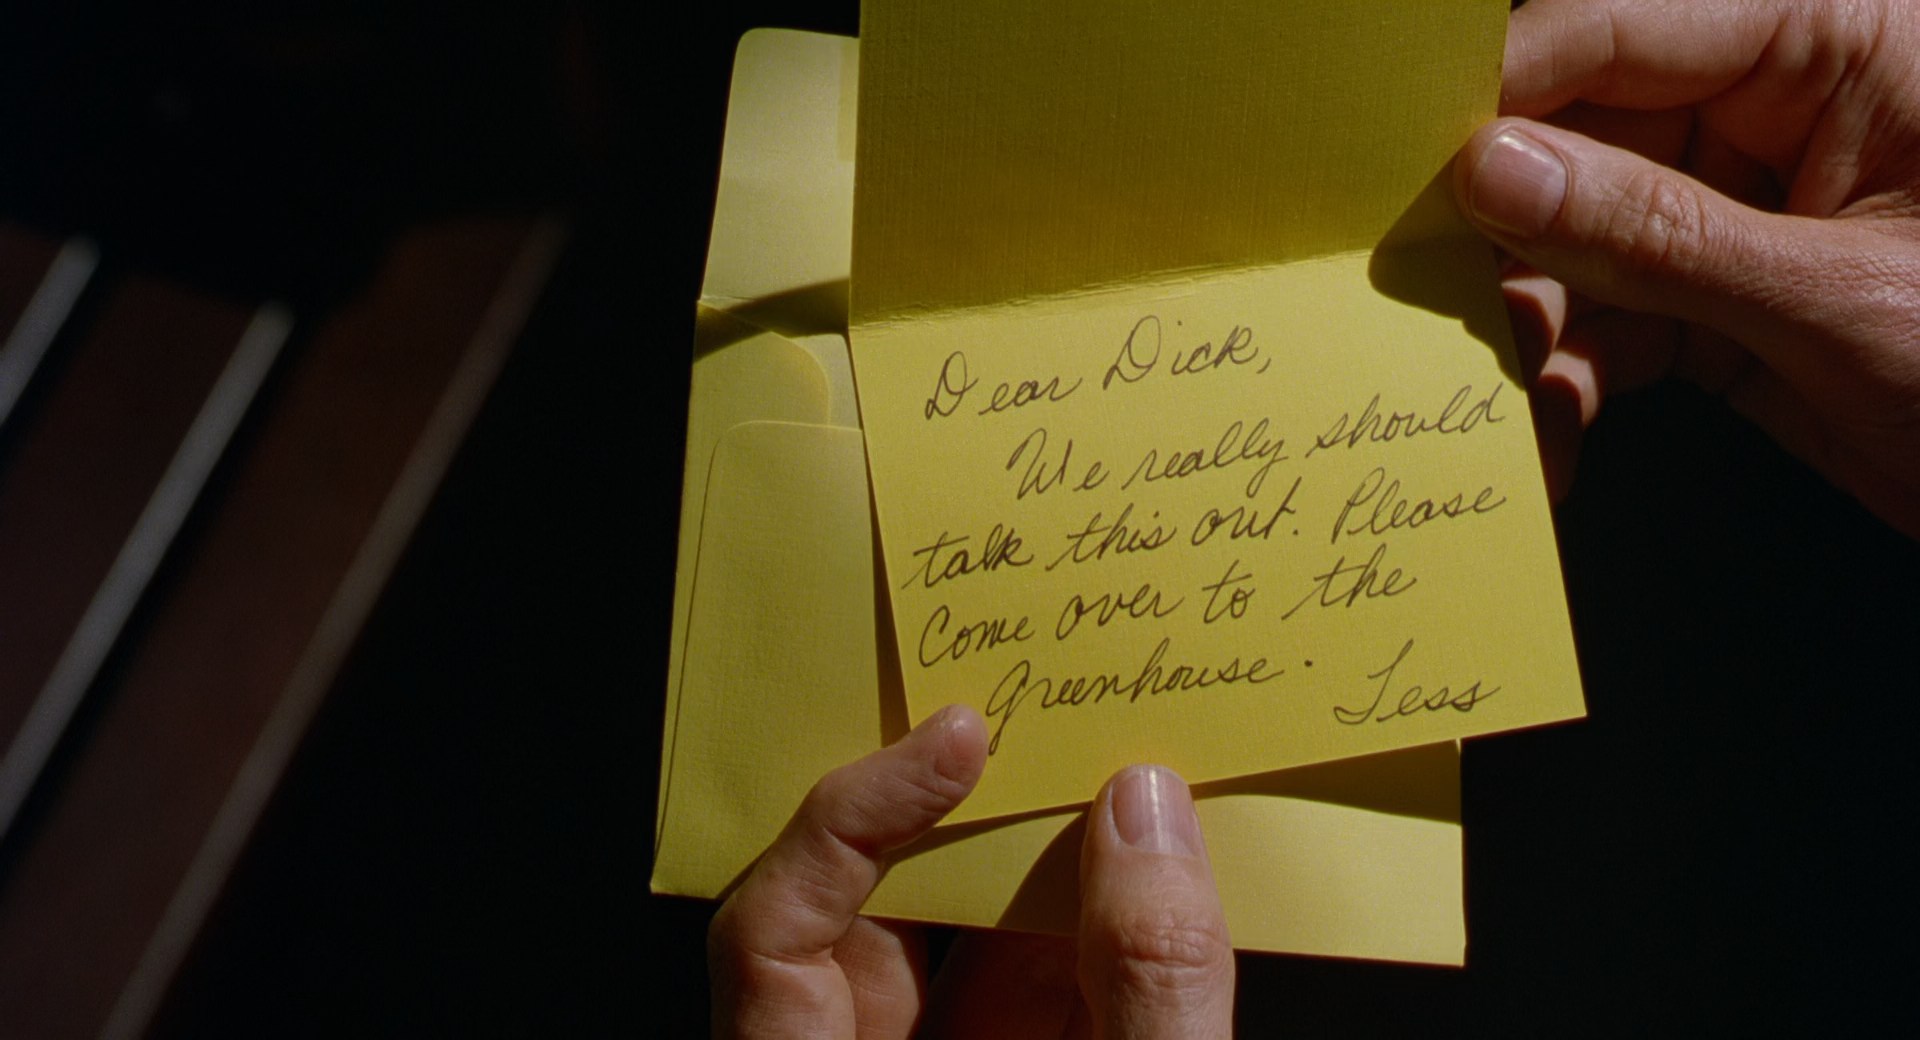 Dear Dick,
We really should
talk this out. Please
Come over to the
greenhouse.
Tess